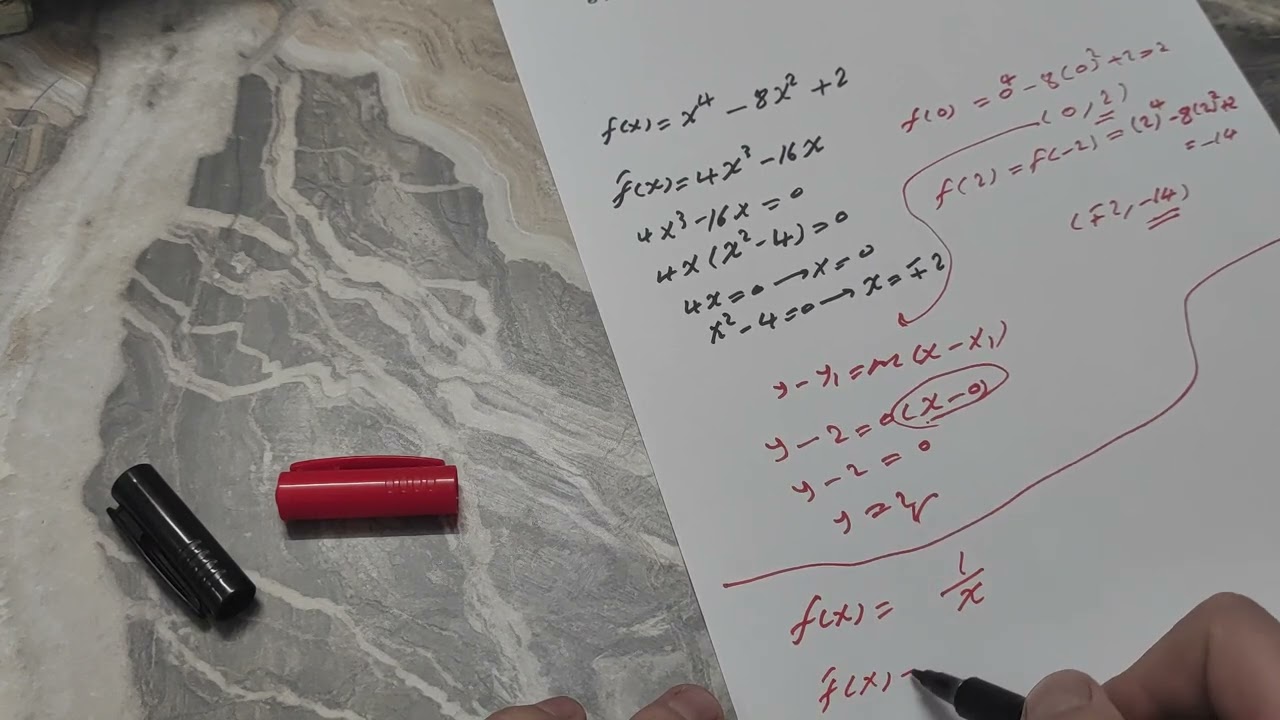 f(x) = x⁴ - 8x² + 2
f́(x) = 4x³ - 16x
4x³ - 16x = 0
4x(x² - 4) = 0
4x = 0 → x = 0
x² - 4 = 0 → x = ∓2
f(0) = 0⁴ - 8(0)² + 2 = 2
(0, 2)
f(2) = f(-2) = (2)⁴ - 8(2)² + 2
= -14
(∓2, -14)
y - y₁ = m(x - x₁)
y - 2 = 0(x - 0)
y - 2 = 0
y = 2
f(x) = 1/x
f́(x) -